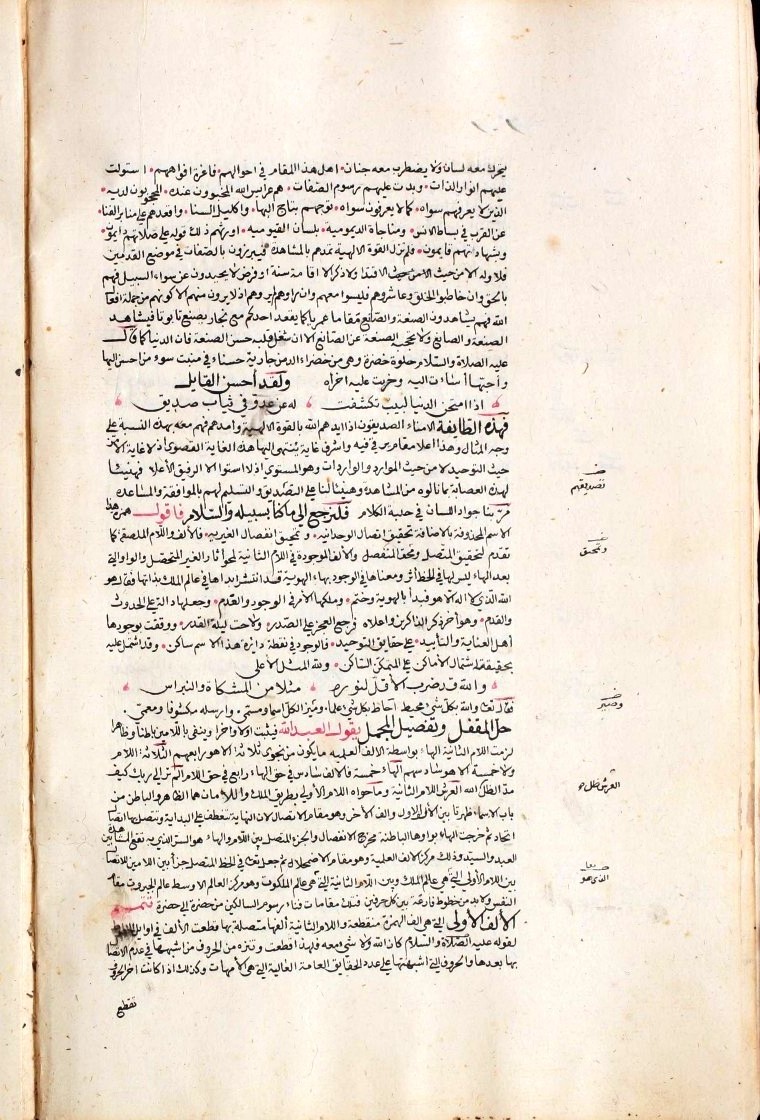 يتحرك معه لسان ولا يضطرب معه جنان اهل هذا المقام في احوالهم فاغرة افواههم استولت
عليهم انوار الذات وبدت عليهم رسوم الصفات هم عرايس الله المخبوون عنده المحجوبون لديه
الذين لا يعرفهم سواه كما لا يعرفون سواه توجهم بتاج البها واكليل السنا واقعدهم على منابر الفنا
عن القرب في بساط الانس ومناجاة الديمومية بلسان القيومية اورثهم ذلك قوله على صلاتهم دايمون
وبشهاداتهم قايمون فلم تزل القوة الالهية تمدهم بالمشاهدة فيبرزون بالصفات في موضع القدمين
فلا وله الا من حيث ولا ذكر الا اقامة سنة او فرض لا يحيدون عن سواء السبيل فهم
بالحق وان خاطبوا الخلق وعاشروهم فليسوا معهم وان راوهم لم يروهم اذ لا يرون منهم الا كونهم من جملة افعال
الله فهم يشاهدون الصنعة والصانع مقاما عمريا كما يقعد احدكم مع نجار يصنع تابوتا فيشاهد
الصنعة والصانع ولا تحجبه الصنعة عن الصانع الا ان شغل قلبه حسن الصنعة فان الدنيا كما قال
عليه الصلاة والسلام حلوة خضرة وهي من خضراء الدمن جارية حسناء في منبت سوء من احسن اليها
واحبها أساءت اليه وخربت عليه اخراه ولقد أحسن القايل
اذا امتحن الدنيا لبيب تكشفت له عن عدو في ثياب صديق
فهذه الطايفة الامناء الصديقون اذا ايدهم الله بالقوة الالهية وامدهم فهم معه بهذه النسبة على
وجه المثال وهذا اعلا مقام يرتقى فيه واشرف غاية ينتهى اليها هذه الغاية القصوى اذ لا غاية الا من
حيث التوحيد لا من حيث الموارد والواردات وهو المستوى اذ لا استوا الا الرفيق الأعلا فهنيئا
لهذه العصابة بما نالوه من المشاهدة وهنيئا لنا على التصديق والتسليم لهم بالموافقة والمساعدة
مر بنا جواد اللسان في حلبة الكلام فلنرجع الى ما كنا بسبيله والسلام فاقول همزة هذا
الاسم المحذوفة بالاضافة تحقيق اتصال الوحدانية وتحيق انفصال الغيرية فالألف واللام الملصقة كما
تقدم لتحقيق المتصل ومحق المنفصل والألف الموجودة في اللام الثانية لمحو اثار الغير المتحصل والواو التي
بعد الهاء ليس لها في الخط أثر ومعناها في الوجود بهاء الهوية قد انتشر ابداها في عالم الملك بذاتها فقال هو
الله الذي لا اله الا هو فبدأ بالهوية وختم وملكها الأمر في الوجود والقدم وجعلها دالة على الحدوث
والقدم وهو آخر ذكر الذاكرين واعلاه فرجع العجز على الصدر ولاحت ليلة القدر ووقفت بوجودها
أهل العناية والتأييد على حقايق التوحيد فالوجود في نقطة دايرة هذا الاسم ساكن وقد اشتمل عليه
بحقيقته اشتمال الأماكن على المتمكن الساكن ولله المثل الأعلى
والله قد ضرب الأقل لنوره مثلا من المشكاة والنبراس
فقال تعالى والله بكل شيء محيط أحاط بكل شيء علما وميز الكل اسما ومسمى وارسله مكشوفا ومعمى
حل المقفل وتفصيل المجمل يقول العبد الله فيثبت اولا واخرا وينفي باللامين باطنا وظاهرا
لزمت اللام الثانية الهاء بواسطة الالف العلمية ما يكون من نجوى ثلاثة الا هو رابعهم الثلاثة اللام
ولا خمسة الا هو سادسهم الهاء خمسة فالالف سادس في حق الهاء رابع في حق اللام الم تر الى ربك كيف
مد الظل الله العرش اللام الثانية وما حواه اللام الأولى بطريق الملك واللامان هما الظاهر والباطن من
باب الاسماء ظهرتا بين الأول والالف الآخر وهو مقام الاتصال لان النهاية تنعطف على البداية وتتصل بها اتصال
اتحاد ثم خرجت الهاء بواوها الباطنة مخرج الانفصال والجزء المتصل بين اللام والهاء هو السر الذي به تقع المشاهدة بين
العبد والسيد وذلك مركز الالف العلمية وهو مقام الاضمحلال ثم جعل تعالى في الخط المتصل جزأ بين اللامين للاتصال
بين اللام الأولى التي هي عالم الملك وبين اللام الثانية التي هي عالم الملكوت وهو مركز العالم الاوسط عالم الجبروت مقام
النفس ولا بد من خطوط فارغة بين كل حرفين فتلك مقامات فناء رسوم السالكين من حضرة الى حضرة تتميم
الألف الأولى التي هي الف الهمزة منقطعة واللام الثانية ألفها متصلة بها قطعت الألف في اوايل الخط
لقوله عليه الصلاة والسلام كان الله ولا شيء معه فلهذا قطعت وتنزه من الحروف من اشبهها في عدم الاتصال
بها بعدها والحروف التي اشبهتها على عدد الحقايق العامة العالية التي هي الأمهات وكذلك اذا كانت اخر الحروف
تقطع
تصديقهم
وتحيق
وصير
العرش ظل هو
الذي هو